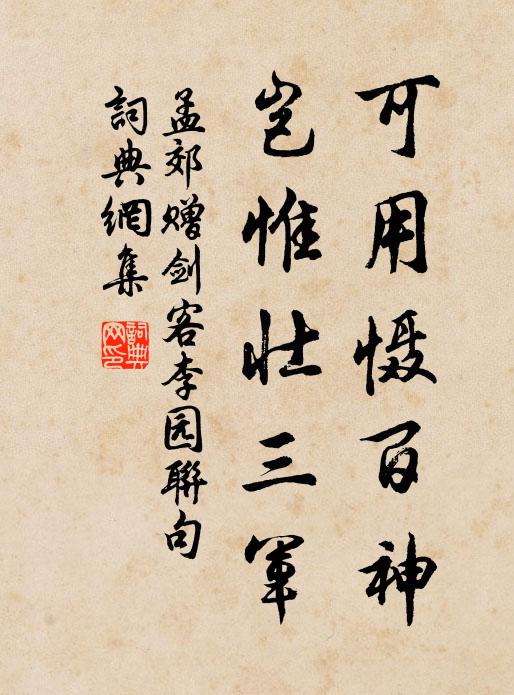 可用慑百神
岂惟壮三軍
孟郊赠剑客李园聯句
詞典網集
詞典网印